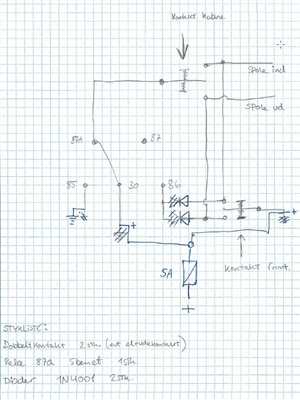 Kontakt Kabine
Spole ind
Spole ud
87A
87
85
30
86
+
+
5A
Kontakt front.
+
STYKLISTE:
Dobbeltkontakt 2 stk.
Relæ 87a 5benet 1stk
Dioder 1N4001 2stk.